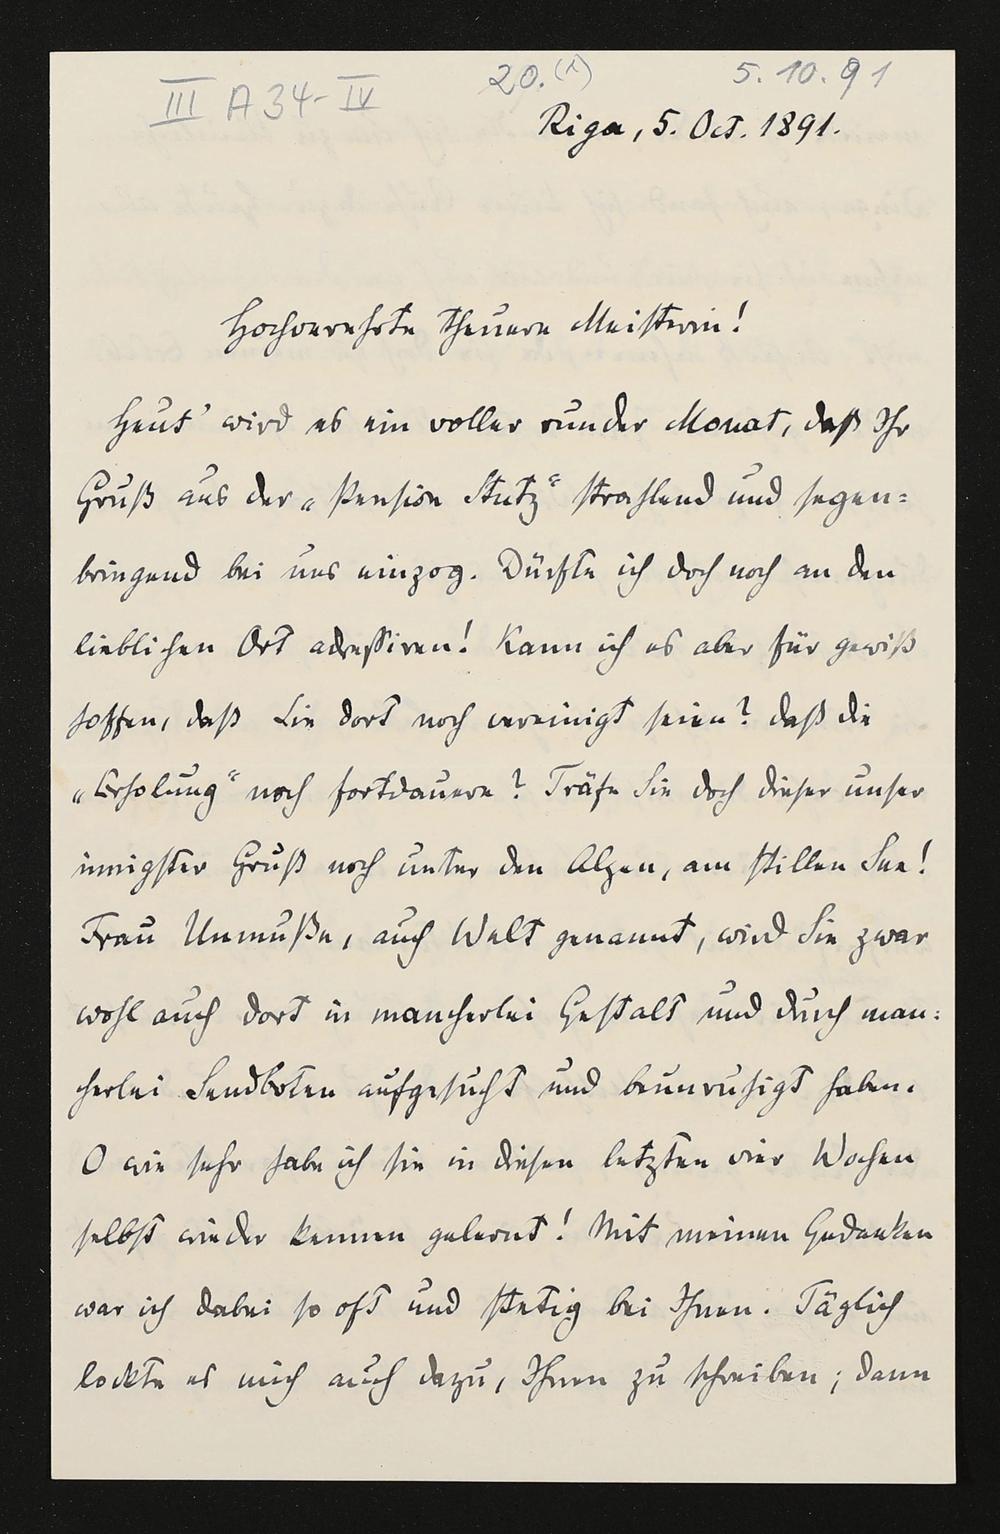 III A 34-IV
20.(1)
5.10.91
Riga, 5. Oct. 1891.
Hochverehrte theuere Meisterin!
Heut' wird es ein voller runder Monat, daß Ihr
Gruß aus der „Pension Stutz“ strahlend und segen=
bringend bei uns einzog. Dürfte ich doch noch an den
lieblichen Ort adressiren! Kann ich es aber für gewiß
hoffen, daß Sie dort noch vereinigt seien? daß die
„Erholung“ noch fortdauere? Träfe Sie doch dieser unser
innigster Gruß noch unter den Alpen, am stillen See!
Frau Unmuße, auch Welt genannt, wird Sie zwar
wohl auch dort in mancherlei Gestalt und durch man=
cherlei Sendboten aufgesucht und beunruhigt haben.
O wie sehr habe ich sie in diesen letzten vier Wochen
selbst wieder kennen gelernt! Mit meinen Gedanken
war ich dabei so oft und stetig bei Ihnen. Täglich
lockte es mich auch dazu, Ihnen zu schreiben; dann